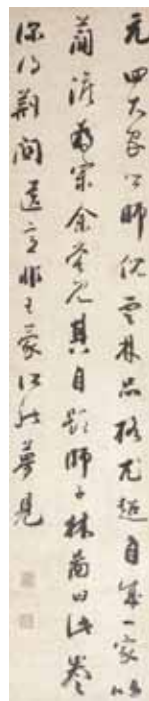 元四大家師倪雲林品格尤超自成一家以
簡澹為宗余嘗見其自題師子林圖曰此卷
深得荊關遺意非王蒙夢見